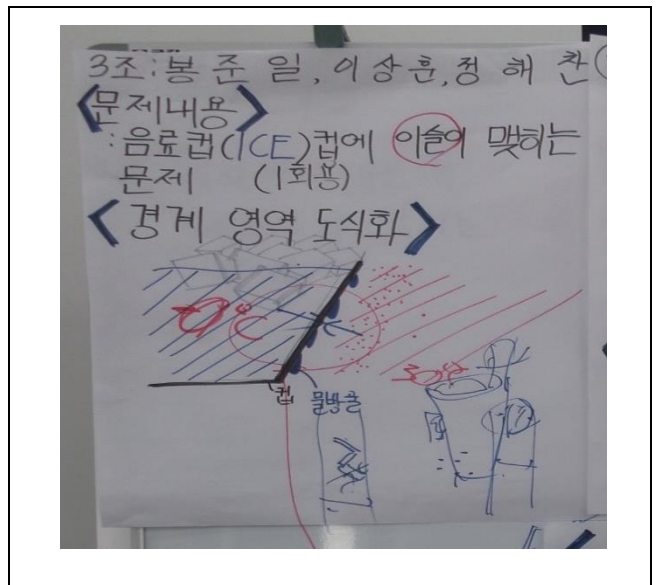 3조:봉준일,이상훈,정해찬
<문제내용>
:음료컵(ICE)컵에 이슬이 맺히는
문제 (1회용)
<경계 영역 도식화>
0℃
컵
물방울